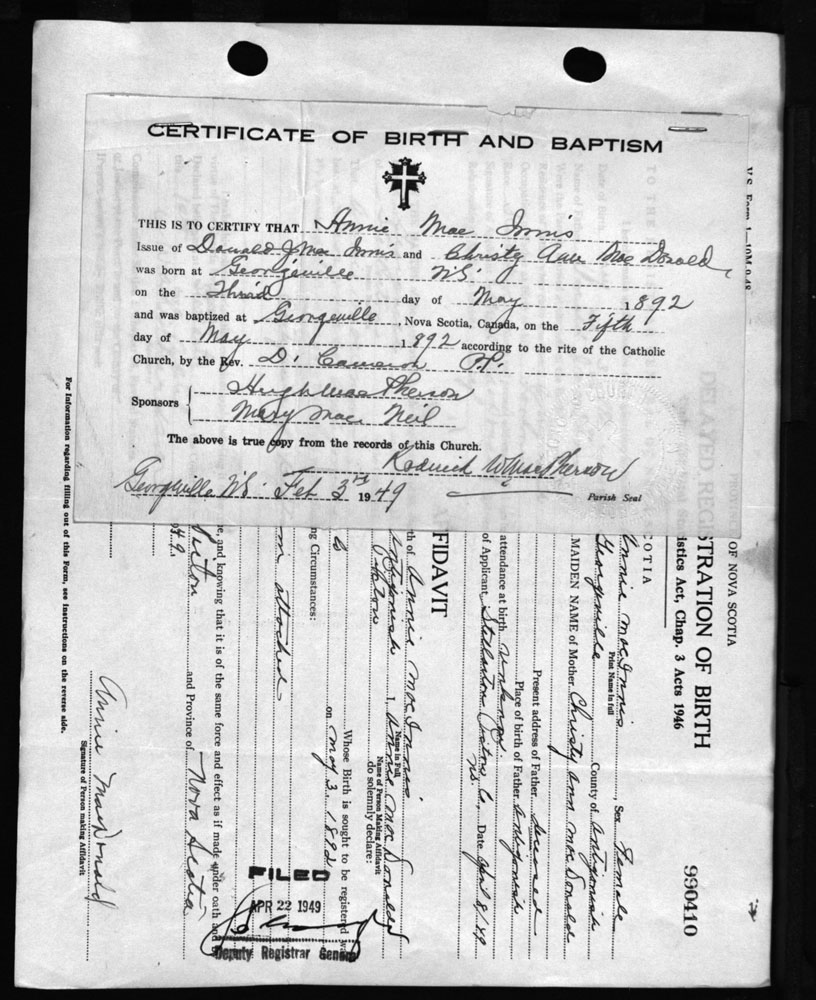 CERTIFICATE OF BIRTH AND BAPTISM
THIS IS TO CERTIFY THAT Annie Mac Innis
Issue of Donald J Mac Innis and Christy Ann Mac Donald
was born at Georgeville NS.
on the Third day of May 1892
and was baptized at Georgeville, Nova Scotia, Canada, on the Fifth
day of May 1892 according to the rite of the Catholic
Church, by the Rev. D. Cameron P.P.
Sponsors
Hugh MacPherson
Mary Mac Neil
The above is true copy from the records of this Church.
Roderick W MacPherson
Georgeville NS. Feb 3rd 1949
Parish Seal
V.S. Form 1—10M
OF NOVA SCOTIA
STRATION OF BIRTH
istics Act, Chap. 3 Acts 1946
990410
COTIA
Annie MacInnis, Sex Female
Print Name in full
Georgeville County of Antigonish
MAIDEN NAME of Mother Christy Ann MacDonald
Present address of Father deceased
Place of birth of Father Antigonish
attendance at birth unknown
of Applicant Stellarton Pictou Co. Date April 8/49
NS.
AFFIDAVIT
th of Annie MacInnis
Name in Full
Antigonish I, Annie MacDonald
Name of Person Making Affidavit
Pictou do solemnly declare:
Whose Birth is sought to be registered was
on May 3, 1892
ng Circumstances:
attached
e, and knowing that it is of the same force and effect as if made under oath and
Pictou and Province of Nova Scotia
Annie MacDonald
Signature of Person making Affidavit
For Information regarding filling out of this Form, see Instructions on the reverse side.
FILED
APR 22 1949
Deputy Registrar General